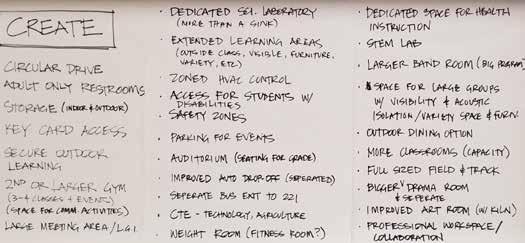 CREATE
CIRCULAR DRIVE
ADULT ONLY RESTROOMS
STORAGE (INDOOR & OUTDOOR)
KEY CARD ACCESS
SECURE OUTDOOR
LEARNING
2ND OR LARGER GYM
(3-4 CLASSES + EVENTS)
(SPACE FOR COMM. ACTIVITIES)
LARGE MEETING AREA/L.G.I.
• DEDICATED SCI. LABORATORY
(MORE THAN A SINK)
• EXTENDED LEARNING AREAS
(OUTSIDE CLASS, VISIBLE, FURNITURE,
VARIETY, ETC)
• ZONED HVAC CONTROL
• ACCESS FOR STUDENTS W/
DISABILITIES
• SAFETY ZONES
• PARKING FOR EVENTS
• AUDITORIUM (SEATING FOR GRADE)
• IMPROVED AUTO DROP-OFF (SEPERATED)
• SEPERATE BUS EXIT TO 221
• CTE - TECHNOLOGY, AGRICULTURE
• WEIGHT ROOM (FITNESS ROOM?)
• DEDICATED SPACE FOR HEALTH
INSTRUCTION
• STEM LAB
• LARGER BAND ROOM (BIG PROGRAM)
• SPACE FOR LARGE GROUPS
W/ VISIBILITY & ACOUSTIC
ISOLATION/VARIETY SPACE & FURN.
• OUTDOOR DINING OPTION
• MORE CLASSROOMS (CAPACITY)
• FULL SIZED FIELD & TRACK
• BIGGER DRAMA ROOM
& SEPERATE
• IMPROVED ART ROOM (W/ KILN)
• PROFESSIONAL WORKSPACE/
COLLABORATION